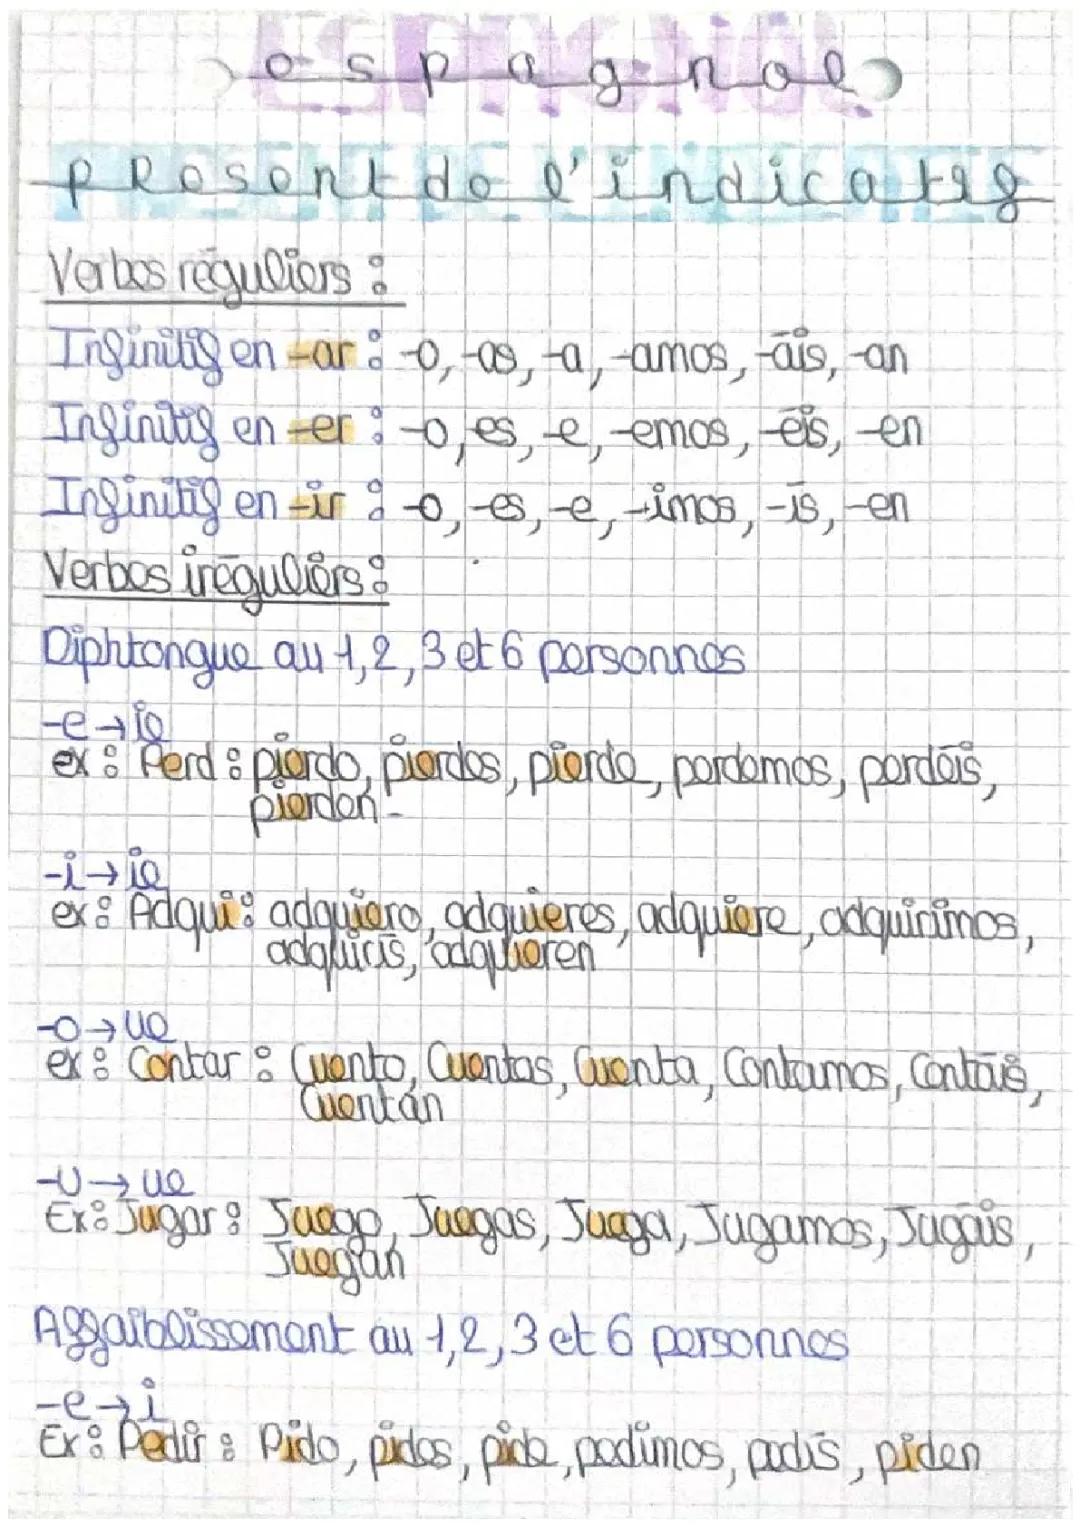 espagnol
présent de l'indicatif
Verbes réguliers :
Infinitif en -ar : -o, -as, -a, -amos, -áis, -an
Infinitif en -er : -o, es, -e, -emos, -éis, -en
Infinitif en -ir : -o, -es, -e, -imos, -ís, -en
Verbes iréguliers :
Diphtongue au 1, 2, 3 et 6 personnes
-e → ie
ex : Perd : pierdo, pierdes, pierde, perdemos, perdéis,
pierden -
-i → ie
ex : Adqui : adquiero, adquieres, adquiere, adquirimos,
adquirís, adquieren
-o → ue
ex : Contar : Cuento, Cuentas, Cuenta, Contamos, Contáis,
Cuentan
-u → ue
Ex : Jugar : Juego, Juegas, Juega, Jugamos, Jugáis,
Juegan
Affaiblissement au 1, 2, 3 et 6 personnes
-e → i
Ex : Pedir : Pido, pides, pide, pedimos, pedís, piden